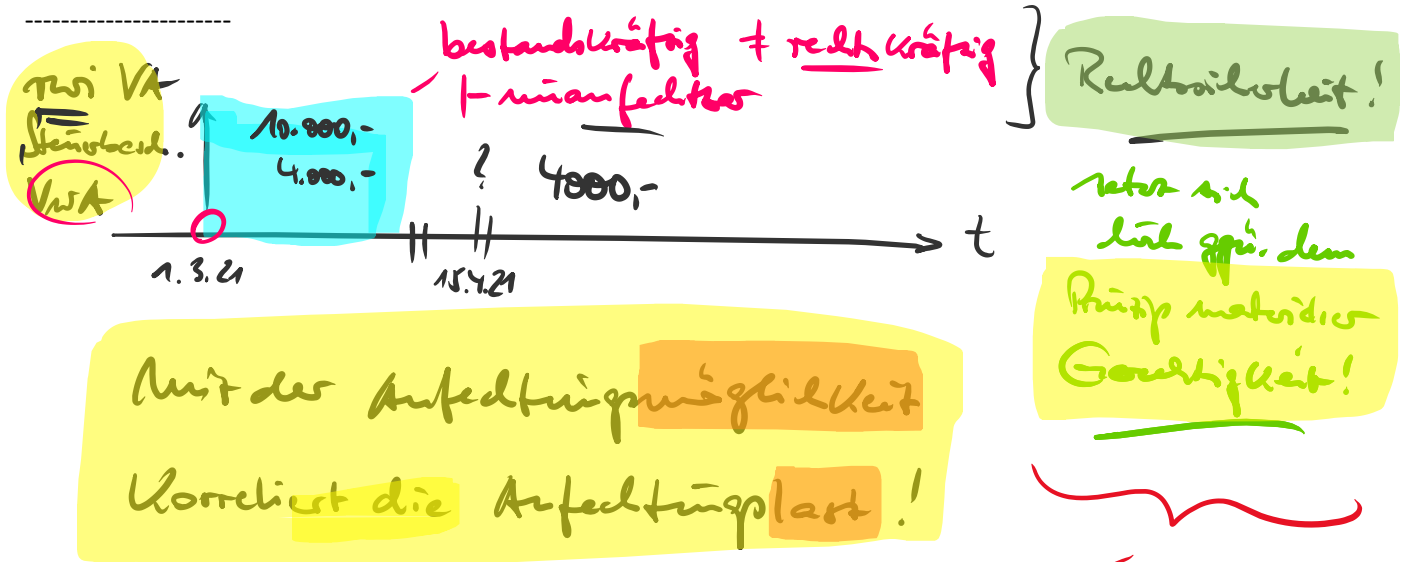 zwei VA
Steuerbesch.
VwA
10.000,-
4.000,-
bestandskräftig ≠ rechtskräftig
unanfechtbar
?
4000,-
1.3.21
15.4.21
t
Rechtssicherheit!
setzt sich
durch ggü. dem
Prinzip materieller
Gerechtigkeit!
Mit der Anfechtungsmöglichkeit
Korreliert die Anfechtungslast!